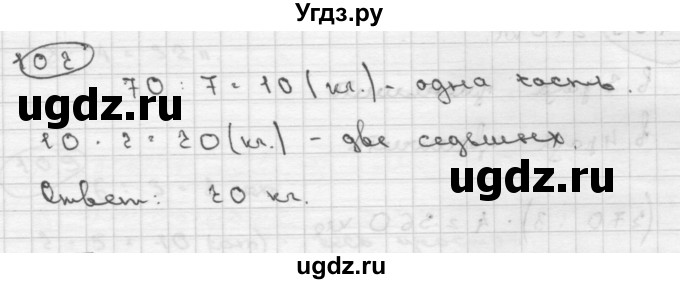 Угдз.ру
702
70 : 7 = 10 (кг.) - одна часть.
ugdz.ru ugdz.ru
10 · 2 = 20 (кг.) - две седьмых.
ugdz.ru
Ответ: 20 кг.
ugdz.ru
ugdz.ru